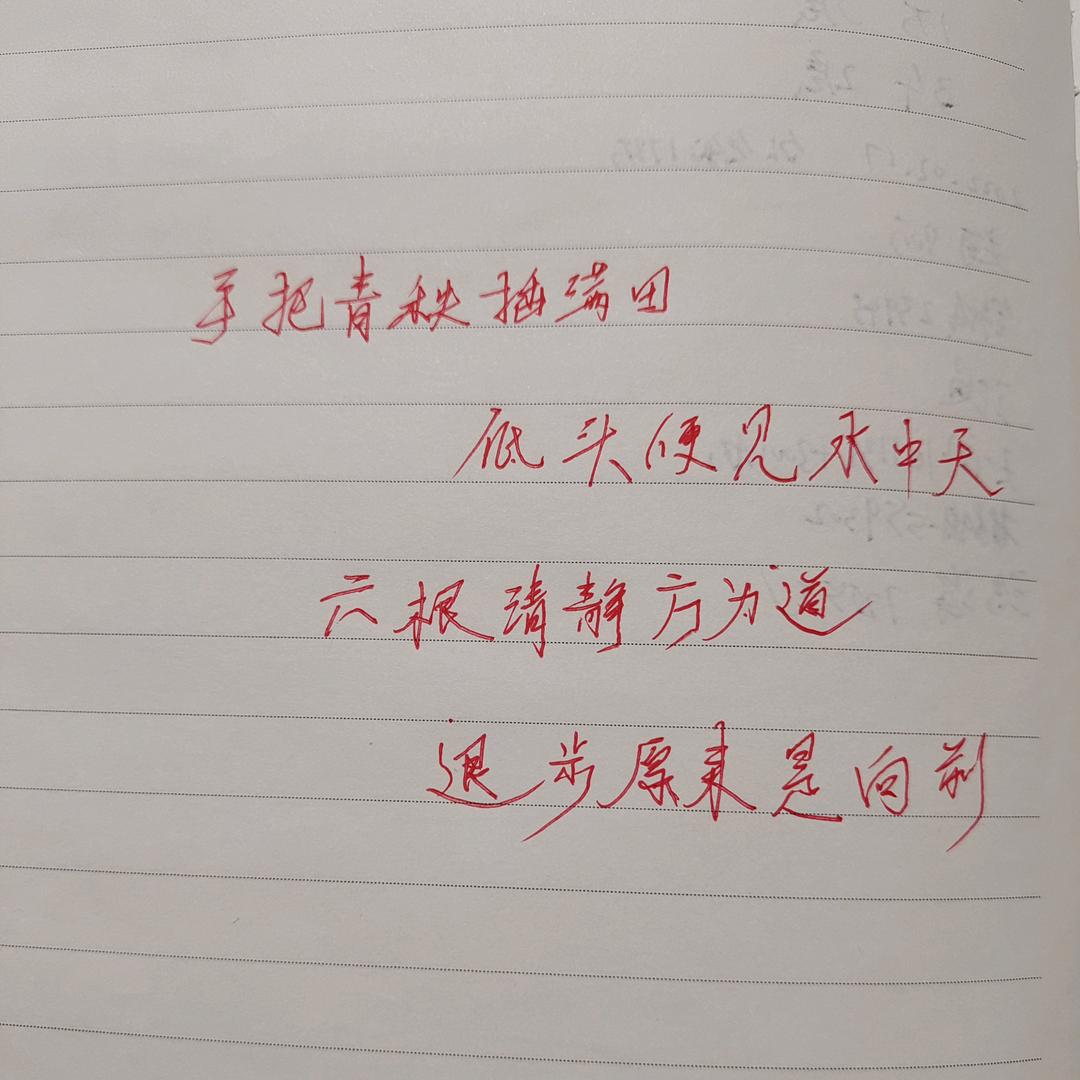 手把青秩插满田
底头便见水中天
六根清静方为道
退步原来是向前